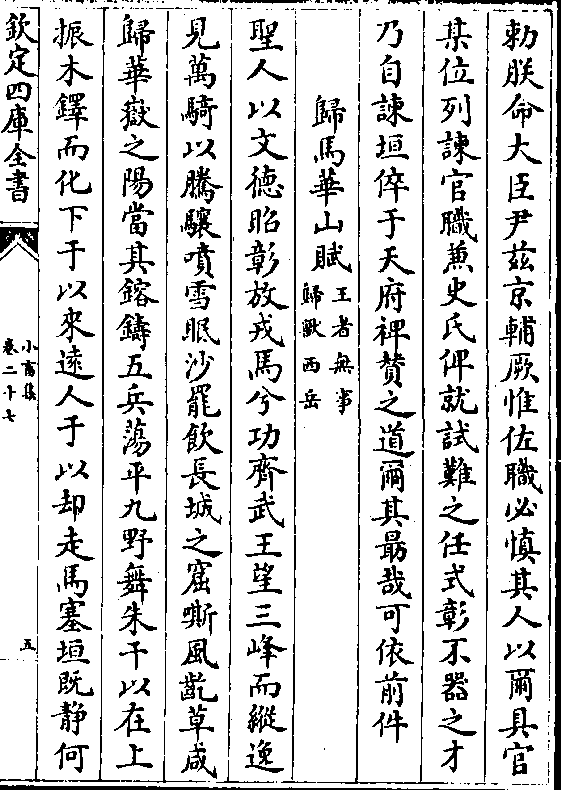 勅朕命大臣尹茲京輔厥惟佐職必慎其人以爾具官
某位列諫官職兼史氏俾就試難之任式彰不器之才
乃自諫垣倅于天府裨賛之道爾其勗哉可依前件
歸馬華山賦
王者無事
歸獸西岳
聖人以文德昭彰放戎馬兮功齊武王望三峰而縱逸
見萬騎以騰驤噴雪眠沙罷飲長城之窟嘶風齕草咸
歸華嶽之陽當其鎔鑄五兵蕩平九野舞朱干以在上
振木鐸而化下于以來遠人于以却走馬塞垣既静何
欽定四庫全書
小畜集
卷二十七
五